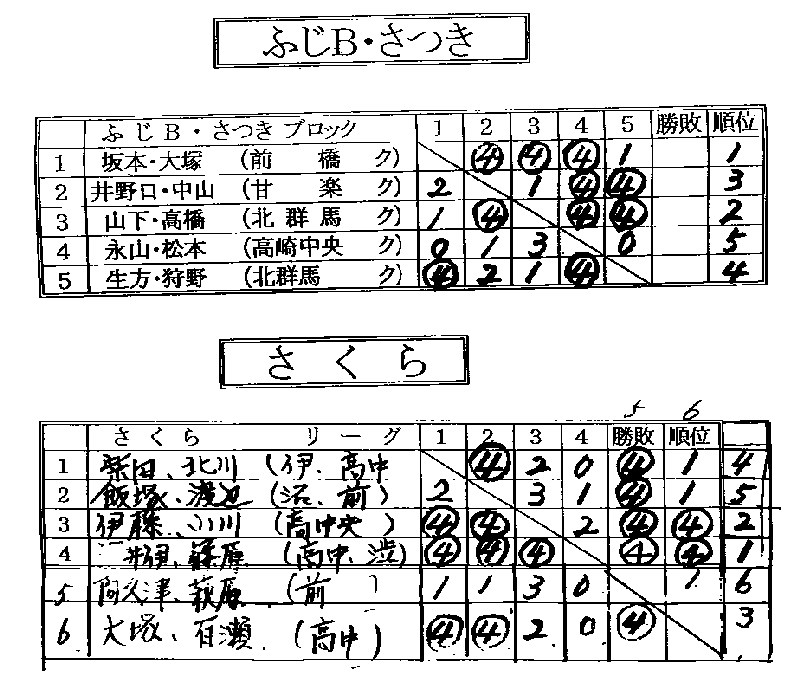 ふじB・さつき
ふじB・さつきブロック 1 2 3 4 5 勝敗 順位
1 坂本・大塚 (前橋ク) ④ ④ ④ 1 1
2 井野口・中山 (甘楽ク) 2 1 ④ ④ 3
3 山下・高橋 (北群馬ク) 1 ④ ④ ④ 2
4 永山・松本 (高崎中央ク) 0 1 3 0 5
5 生方・狩野 (北群馬ク) ④ 2 1 ④ 4
さくら
5 6
さくらリーグ 1 2 3 4 勝敗 順位
1 柴田、北川 (伊、高中 ④ 2 0 ④ 1 4
2 飯塚、渡辺 (沼、前) 2 3 1 ④ 1 5
3 伊藤、小川 (高中央) ④ ④ 2 ④ ④ 2
4 井伊、篠原 (高中、渋) ④ ④ ④ ④ ④ 1
5 阿久津、萩原 (前 ) 1 1 3 0 1 6
6 大塚、百瀬 (高中) ④ ④ 2 0 ④ 3